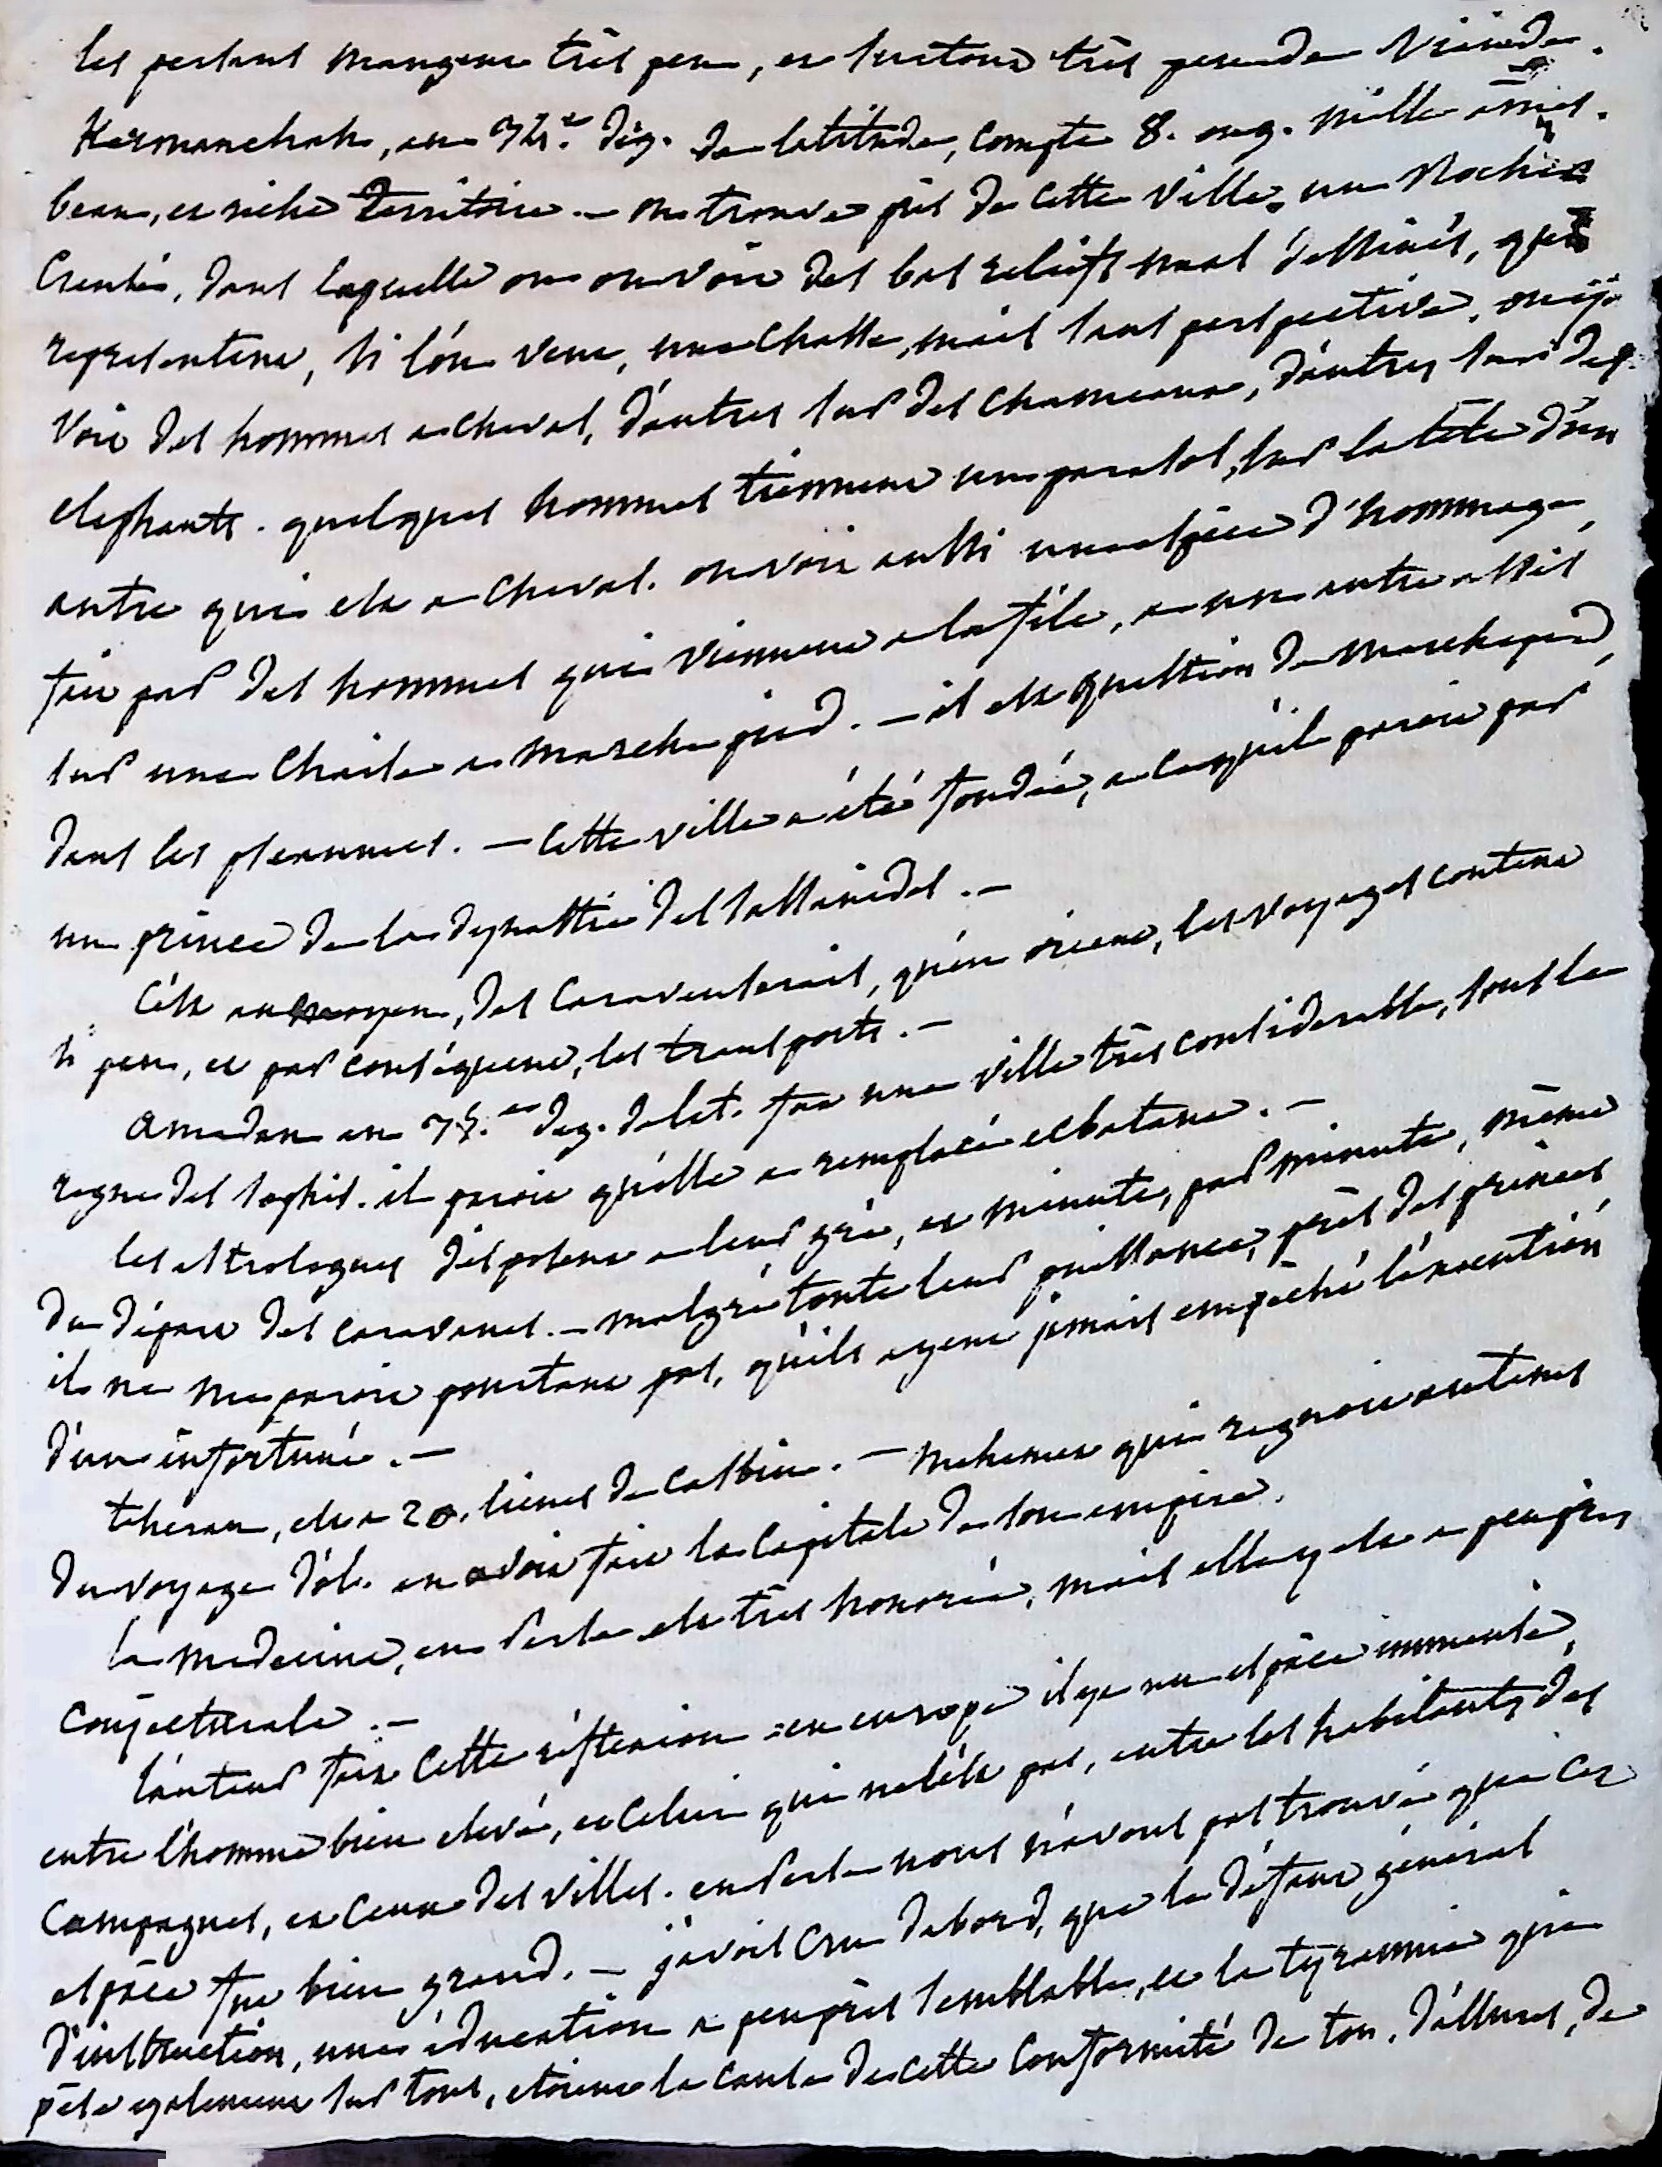 les persans mangent très peu, et surtout très peu de viande.
Kermanchah, au 34.e deg. de latitude, compte 8. ou 9. mille âmes.
beau, et riche territoire. — on trouve près de cette ville, un Rocher
creusé, dans laquelle on en voit des bas reliefs mal déssinés, qui
representent, si l'on veut, une chasse, mais sans perspective. on y
voit des hommes a cheval, d'autres sur des chameaux, d'autres sur des
elephants. quelques hommes tiennent un parasol, sur la tête d'un
autre qui est a cheval. on voit aussi une espèce d'hommage,
fait par des hommes qui viennent a la file, a un autre assis
sur une chaise a marche pied. — il est question de marchepied,
dans les pseaumes. — cette ville a été fondée, a ce qu'il paroit par
un prince de la dynastie des sassanides. —
c'est au moyen, des caravenserais, qu'en orient, les voyages coutent
si peu, et par conséquent, les transports. —
amadan au 35.e deg. de lat. fut une ville très considerable, sous le
regne des sophis. il paroit qu'elle a remplacé ecbatane. —
les astrologues disposent a leur gré, et minute, par minute, même
du départ des caravanes. — malgré toute leur puissance, près des princes,
il ne me paroit pourtant pas, qu'ils ayent jamais empêché l'éxecution
d'un infortuné. —
teheran, est a 20. lieues de casbin. — mehemet qui regnoit au tems
du voyage d'ol. en avoit fait la capitale de son empire.
la medecine, en Perse est très honorée, mais elle y est a peu près
conjecturale. —
l'auteur fait cette réflexion : en europe il y a un espace immense,
entre l'homme bien elevé, et celui qui ne l'est pas, entre les habitants des
campagnes, et ceux des villes. en Perse nous n'avons pas trouvé que cet
espace fut bien grand. — j'avois cru dabord, que le défaut général
d'instruction, une éducation a peu près semblable, et la tyrannie qui
pèse egalement sur tous, etoient la cause de cette conformité de ton, d'allures, de